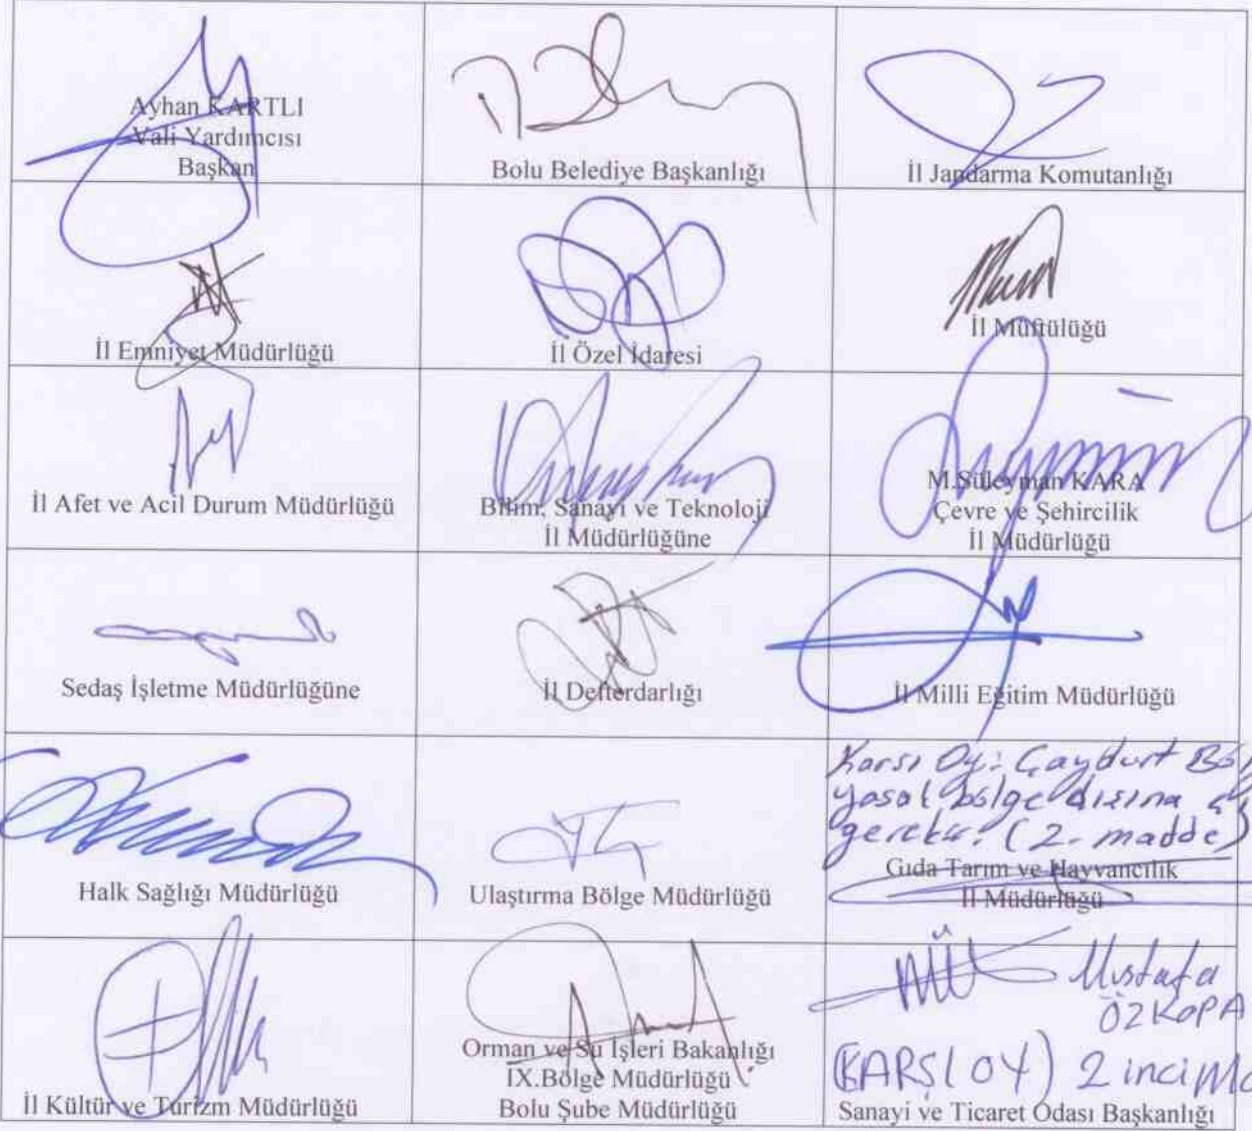 Ayhan KARTLI
Vali Yardımcısı
Başkan
Bolu Belediye Başkanlığı
İl Jandarma Komutanlığı
İl Emniyet Müdürlüğü
İl Özel İdaresi
İl Müftülüğü
İl Afet ve Acil Durum Müdürlüğü
Bilim, Sanayi ve Teknoloji
İl Müdürlüğüne
M.Süleyman KARA
Çevre ve Şehircilik
İl Müdürlüğü
Sedaş İşletme Müdürlüğüne
İl Defterdarlığı
İl Milli Eğitim Müdürlüğü
Halk Sağlığı Müdürlüğü
Ulaştırma Bölge Müdürlüğü
Karşı Oy: Çaydurt
yasal bölge dışına
gerekir. (2. madde)
Gıda Tarım ve Hayvancılık
İl Müdürlüğü
İl Kültür ve Turizm Müdürlüğü
Orman ve Su İşleri Bakanlığı
IX.Bölge Müdürlüğü
Bolu Şube Müdürlüğü
Mustafa
ÖZKOPA
(KARŞI OY) 2 inci
Sanayi ve Ticaret Odası Başkanlığı